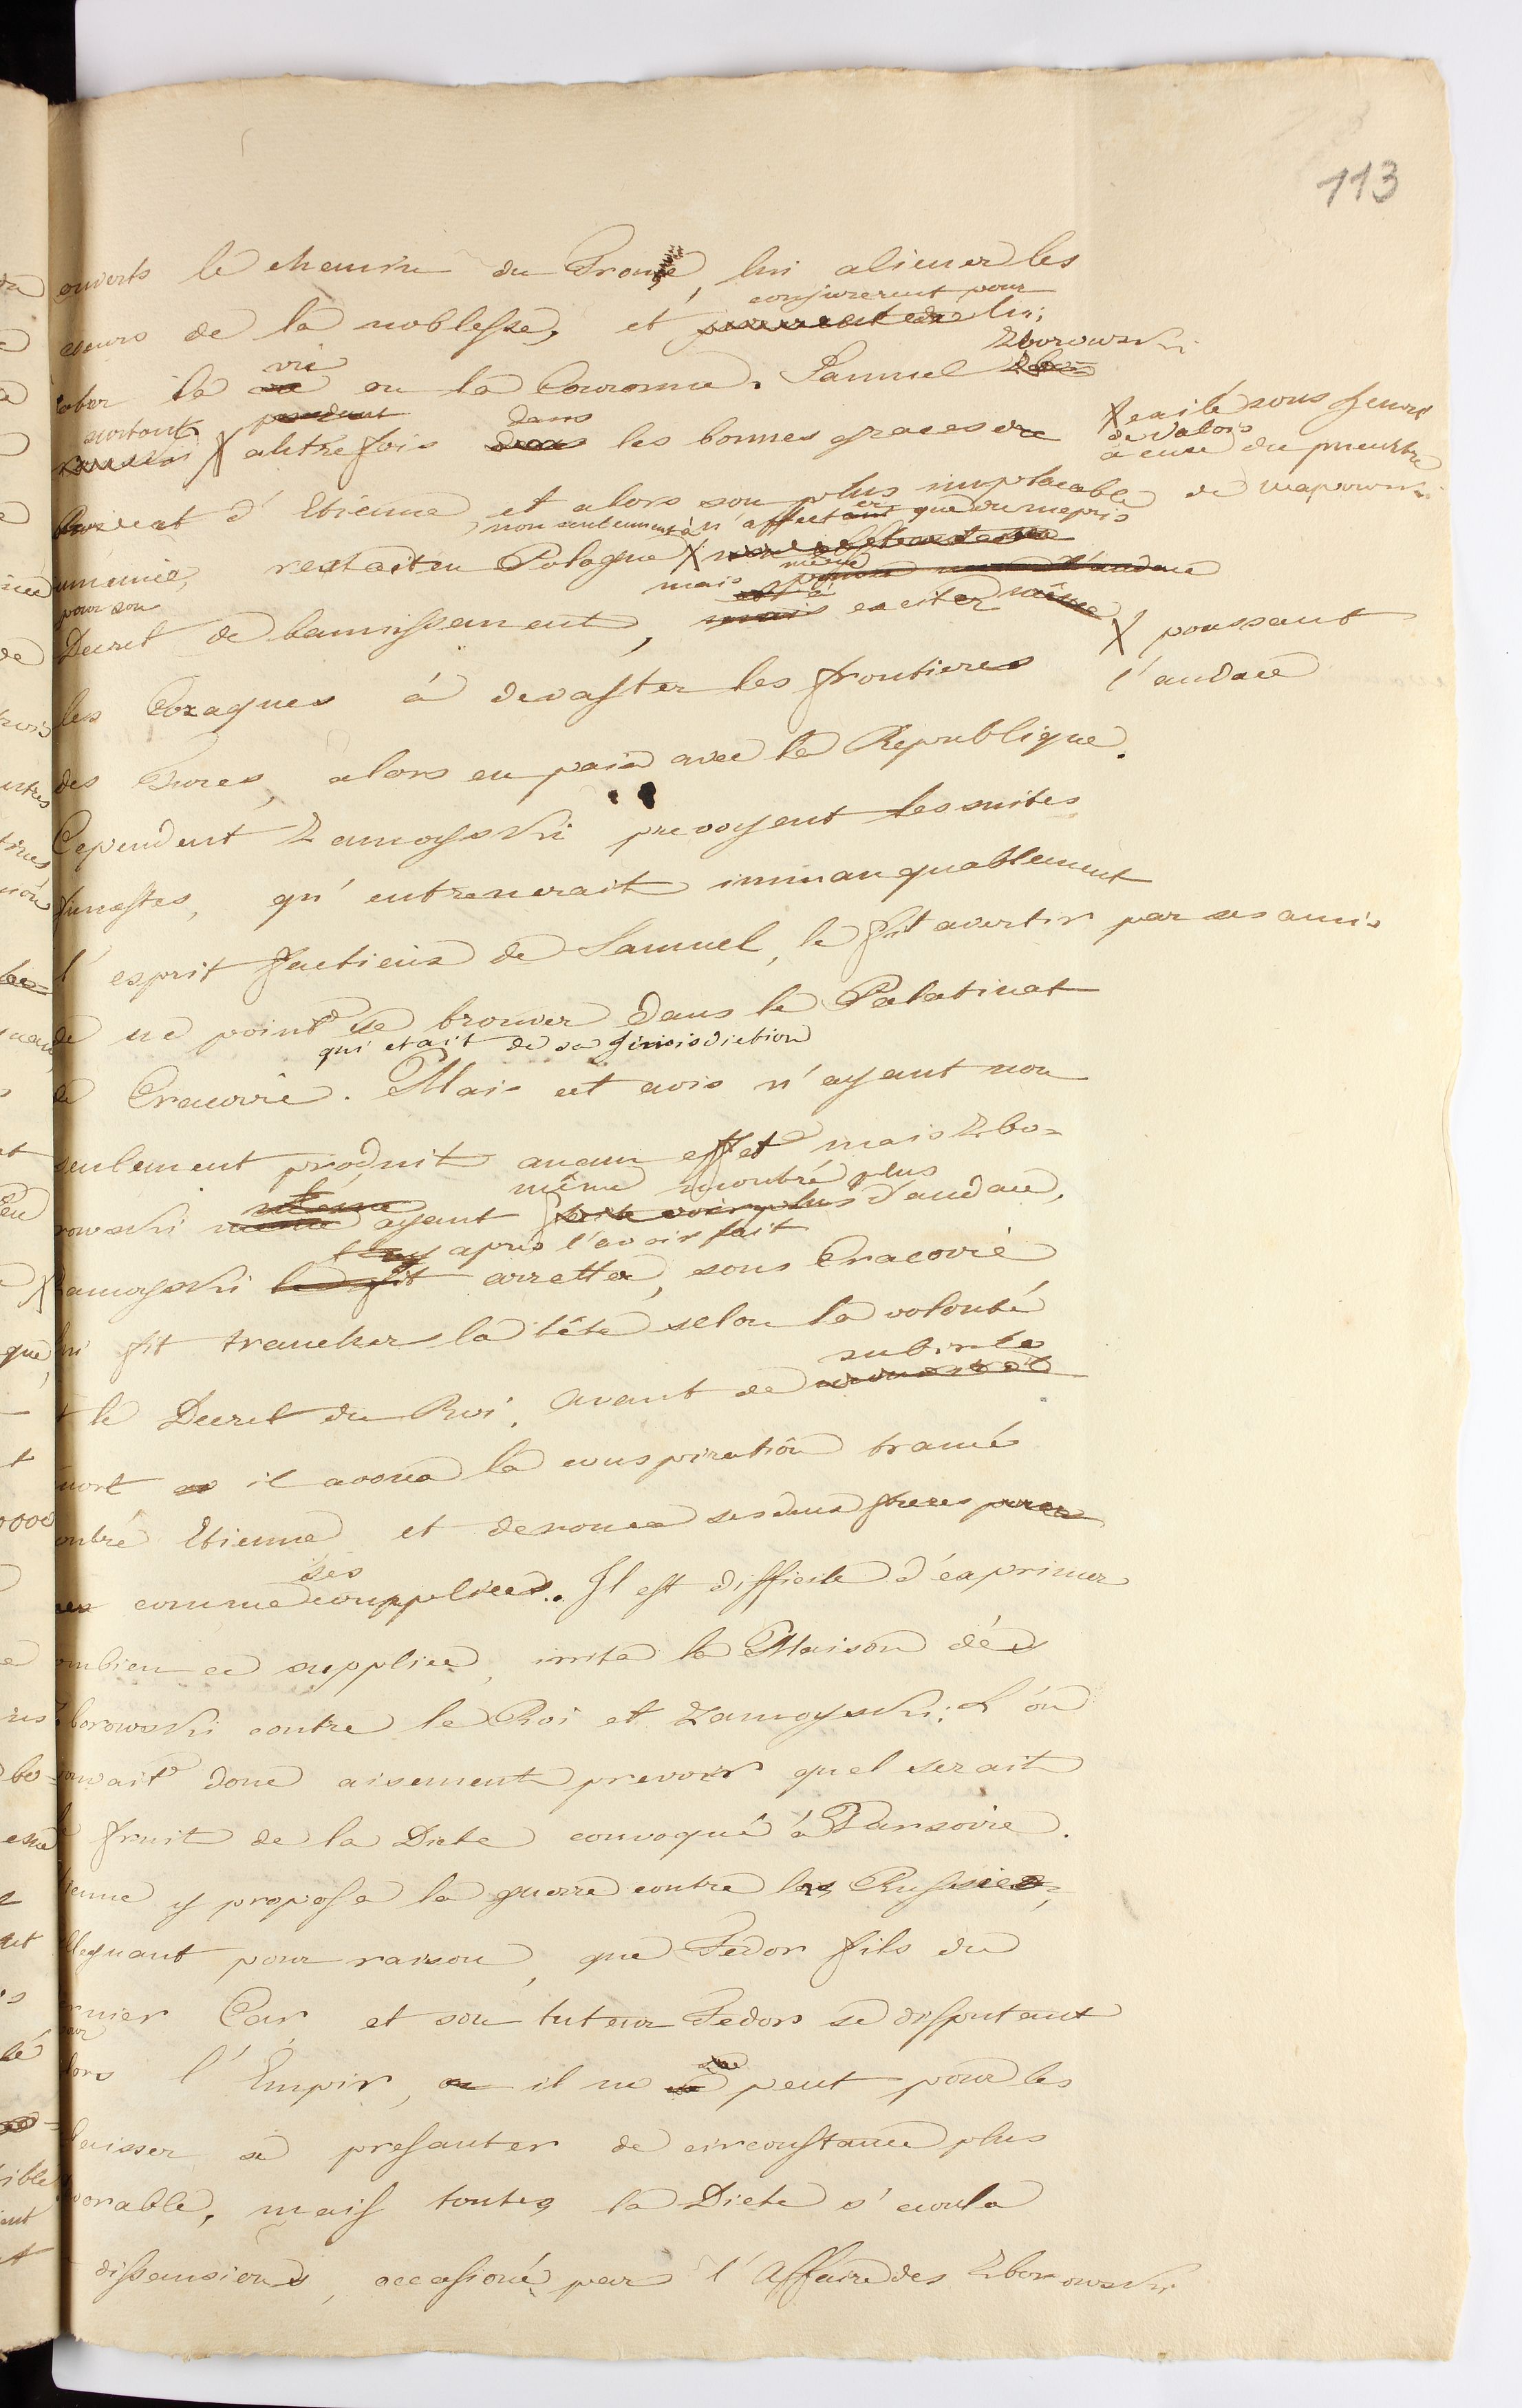 113
ouverts le chemin du Trone, lui aliener les
coeurs de la noblesse, et conjurerent pour lui
oter la vie ou la Couronne. Samuel Zborowski
surtout X autre fois dans les bonnes graces de
X exilé sous Henri
de Valois
à cause du meurtre
de Wapowski
et d'Etienne, et alors son plus implacable
non seulement à n'affecter que du mepris
restait en Pologne X
pour son
Decret de bannissement, mais même à exciter
X poussant
l'audace
les Cozaques á devaster les frontieres
des Turcs, alors en paix avec la Republique.
Cependent Zamoyski prevoyent les suites
funestes, qu'entrenerait immanquablement
l'esprit factieux de Samuel, le fit avertir par ses amis
de ne point se trouver dans le Palatinat
qui etait de sa jurisdiction
de Cracovie. Mais cet avis n'ayant non
seulement produit aucun effet mais Zbo=
rowski ayant même montré plus d'audace,
après l'avoir fait
Zamoyski arretter, sous Cracovie
lui fit trancher la tête selon la volonté
et le Decret du Roi. Avant de subir la
mort il avoua la conspiration tramée
contre Etienne et denonca ses deux freres
comme ses complices. Il est difficile d'exprimer
combien ce supplice, irrita la Maison dés
Zborowski contre le Roi et Zamoyski: L'on
pouvait donc aisement prevoir quel serait
le fruit de la Diete convoqué à Varsovie.
Etienne y proposa la guerre contre les Russies,
alleguant pour raison, que Fedor fils du
dernier Car et son tuteur Fedors se disputant
alors l'Empir, il ne peut pour les
baisser se presanter de circonstance plus
favorable, mais toute la Diete s'ecoula
dissensions, occasioné par l'Affaire des Zborowski